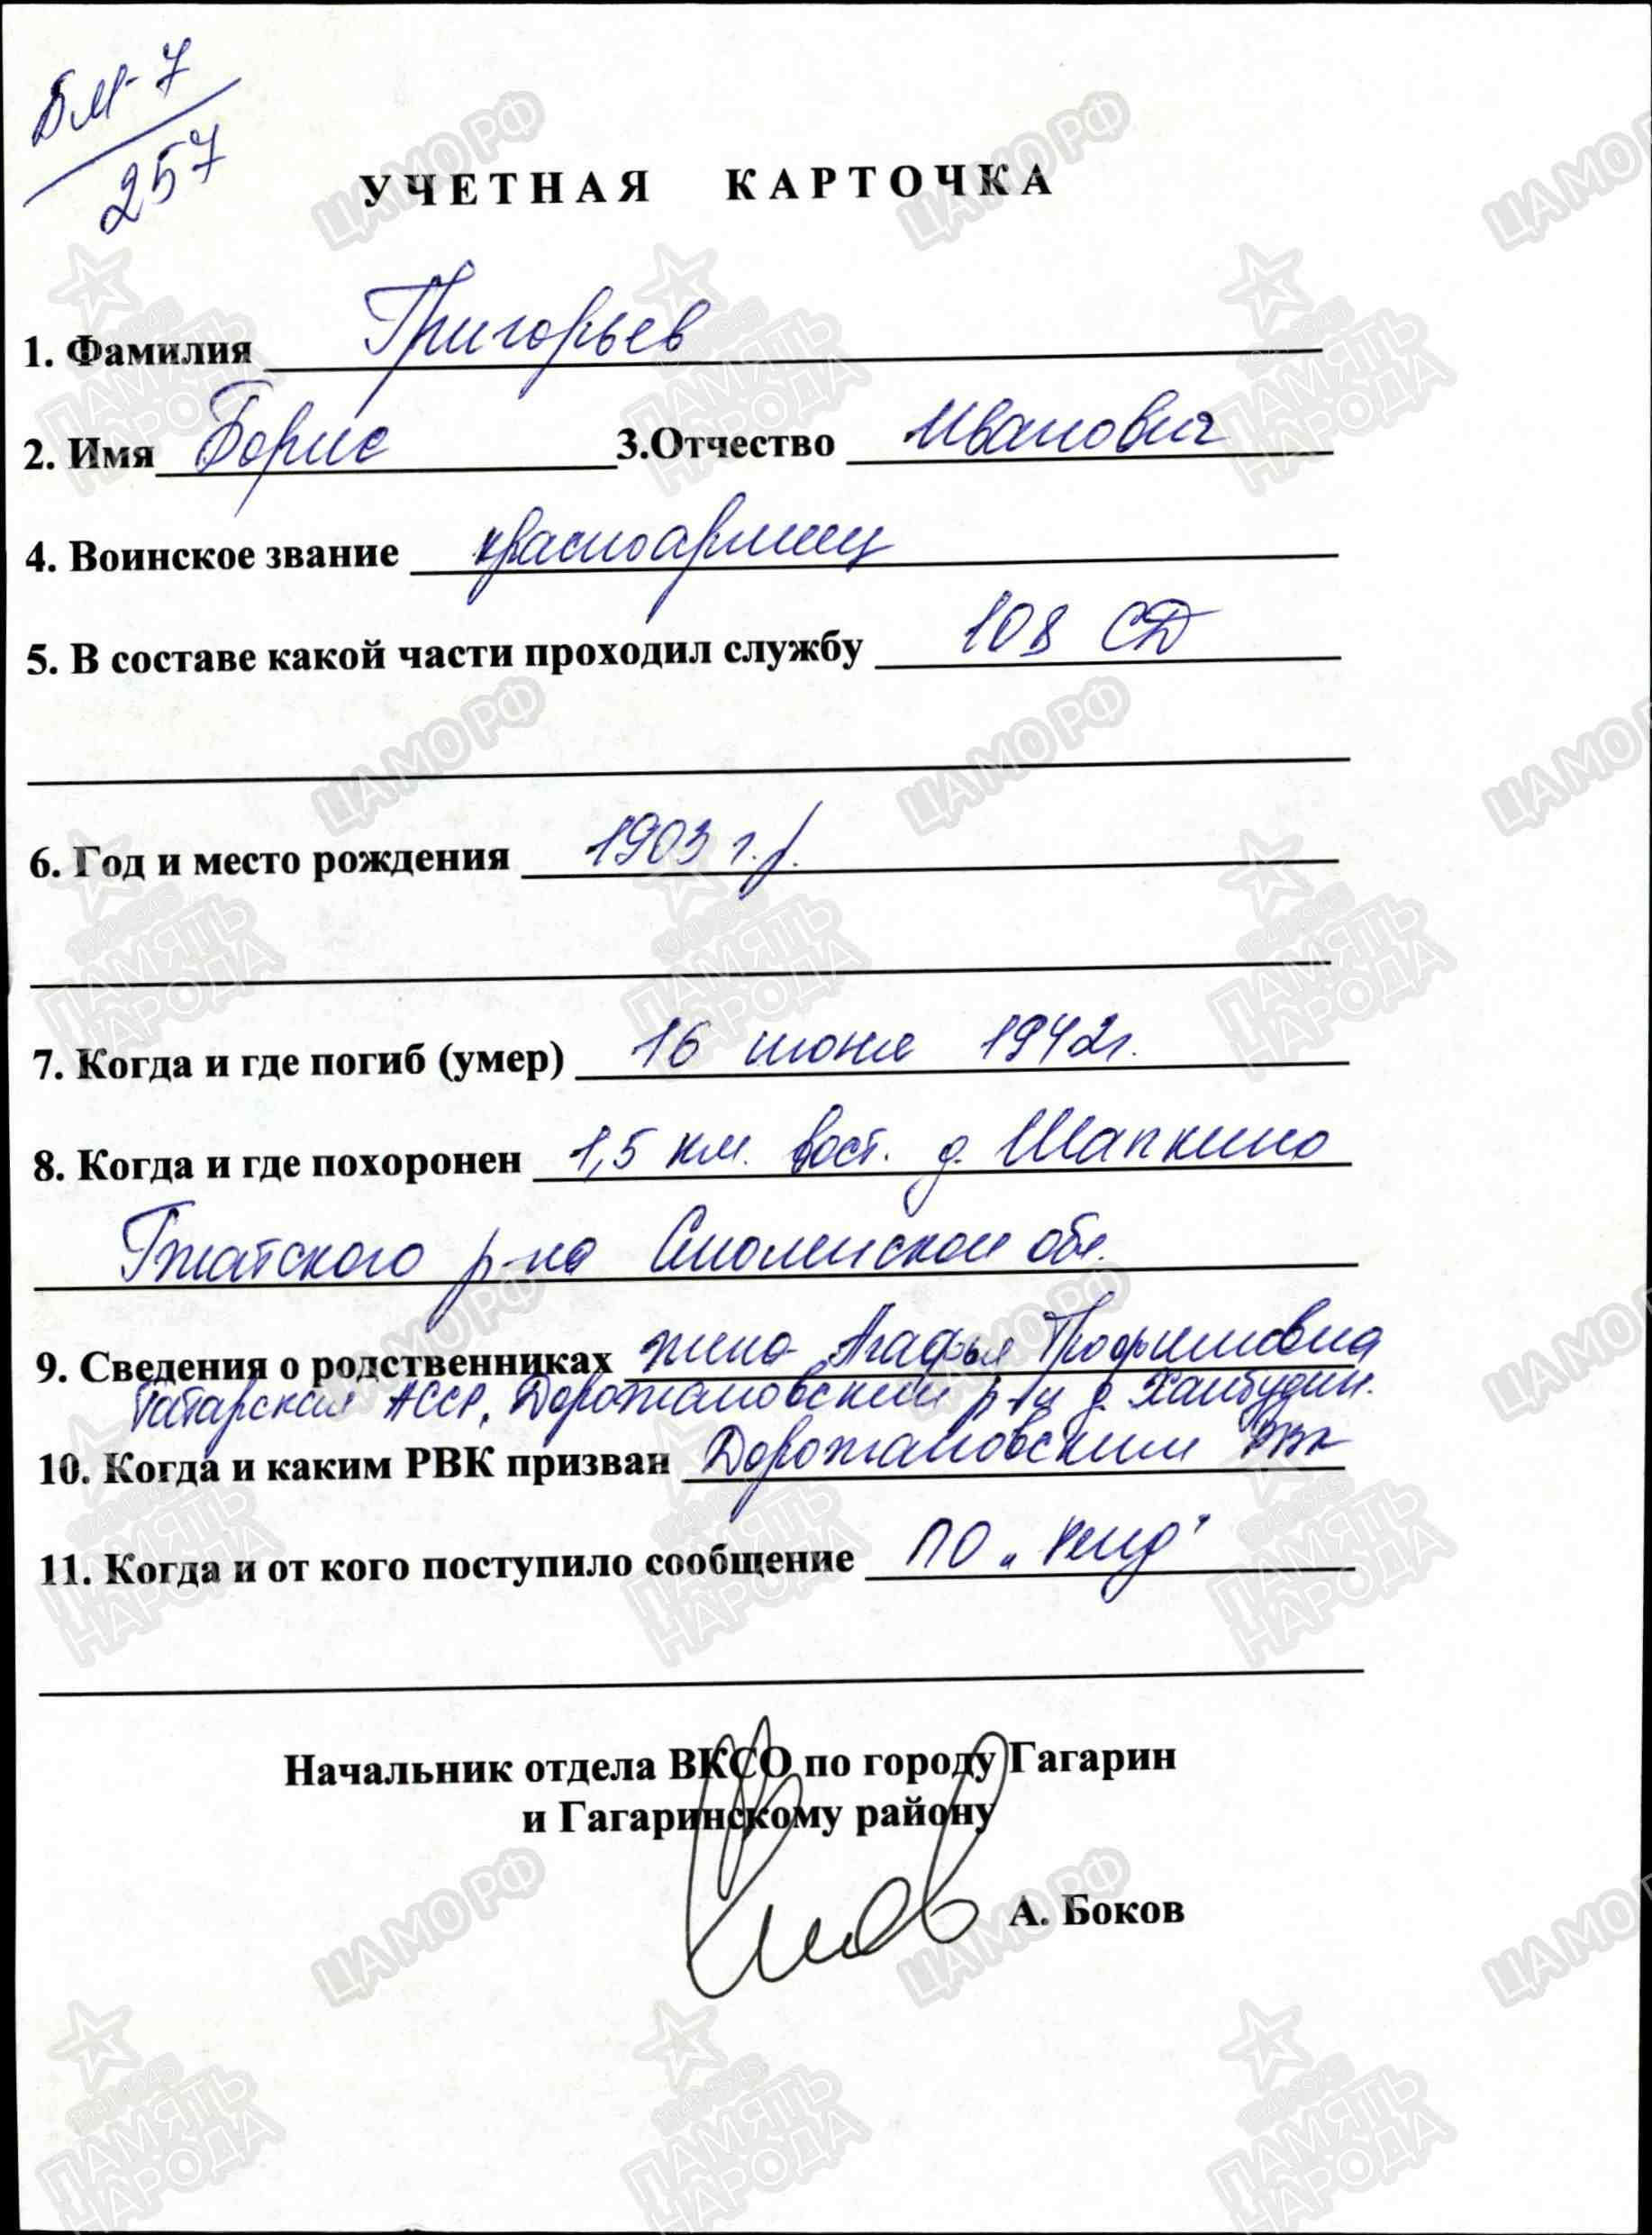 БМ-7
257
УЧЕТНАЯ КАРТОЧКА
1. Фамилия Григорьев
2. Имя Борис 3.Отчество Иванович
4. Воинское звание красноармеец
5. В составе какой части проходил службу 108 СД
6. Год и место рождения 1903 г.р.
7. Когда и где погиб (умер) 16 июня 1942г.
8. Когда и где похоронен 1,5 км. вост. д. Шапкино
Гжатского р-на Смоленской обл.
9. Сведения о родственниках жена Агафья Трофимовна
Татарская АССР, Дорожановский р-н д. Хаибудин.
10. Когда и каким РВК призван Дорожановским РВК
11. Когда и от кого поступило сообщение ПО "
Начальник отдела ВКСО по городу Гагарин
и Гагаринскому району
А. Боков
ЦАМО РФ
ПАМЯТЬ
НАРОДА